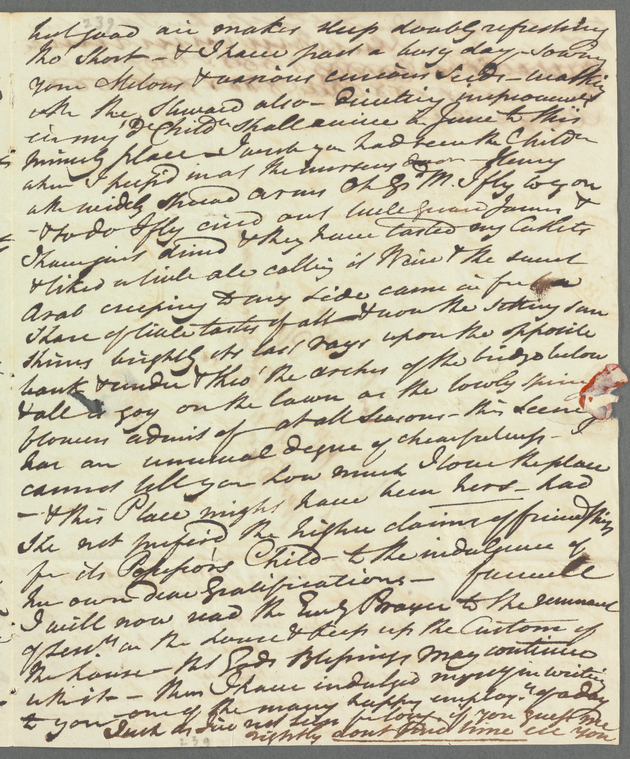 but good air makes sleep doubly refreshing
tho' short - & I have past a busy day - sowing
your Melons & various curious Seeds - walking
with the Steward also - directing improvements
Shall arrive in June to this
lovely place - I wish you had seen the Childn
when I peep'd in at the nursery door - Henry
with widely spread arms Oh Gd M. I fly to you
- & so do I fly cried out little James &
I have just dined & they have tasted my Cutlets
& liked a little ale calling it Wine & the sweet
Arab creeping to my side came in for a
Share of little tastes of all - & now the setting sun
shines brightly its last rays upon the opposite
bank & under & thro' the arches of the bridge below
& all is gay on the lawn as the lovely spring
flowers admit of at all Seasons - this Scene
has an unusual degree of chearfulness - I
cannot tell you how much I love the place
- & this Place might have been hers - had
She not preferd the higher claims of friendship
for its Child - to the indulgence of
her own dear Gratifications - farewell
I will now read the Eveng Prayer to the remnant
of Servts in the house & keep up the Custom of
the house - that Gods Blessings may continue
with it - thus I have indulged myself in writing
to you one of the many happy employts of a day
Such as I do not help if you guess me
rightly dont find time